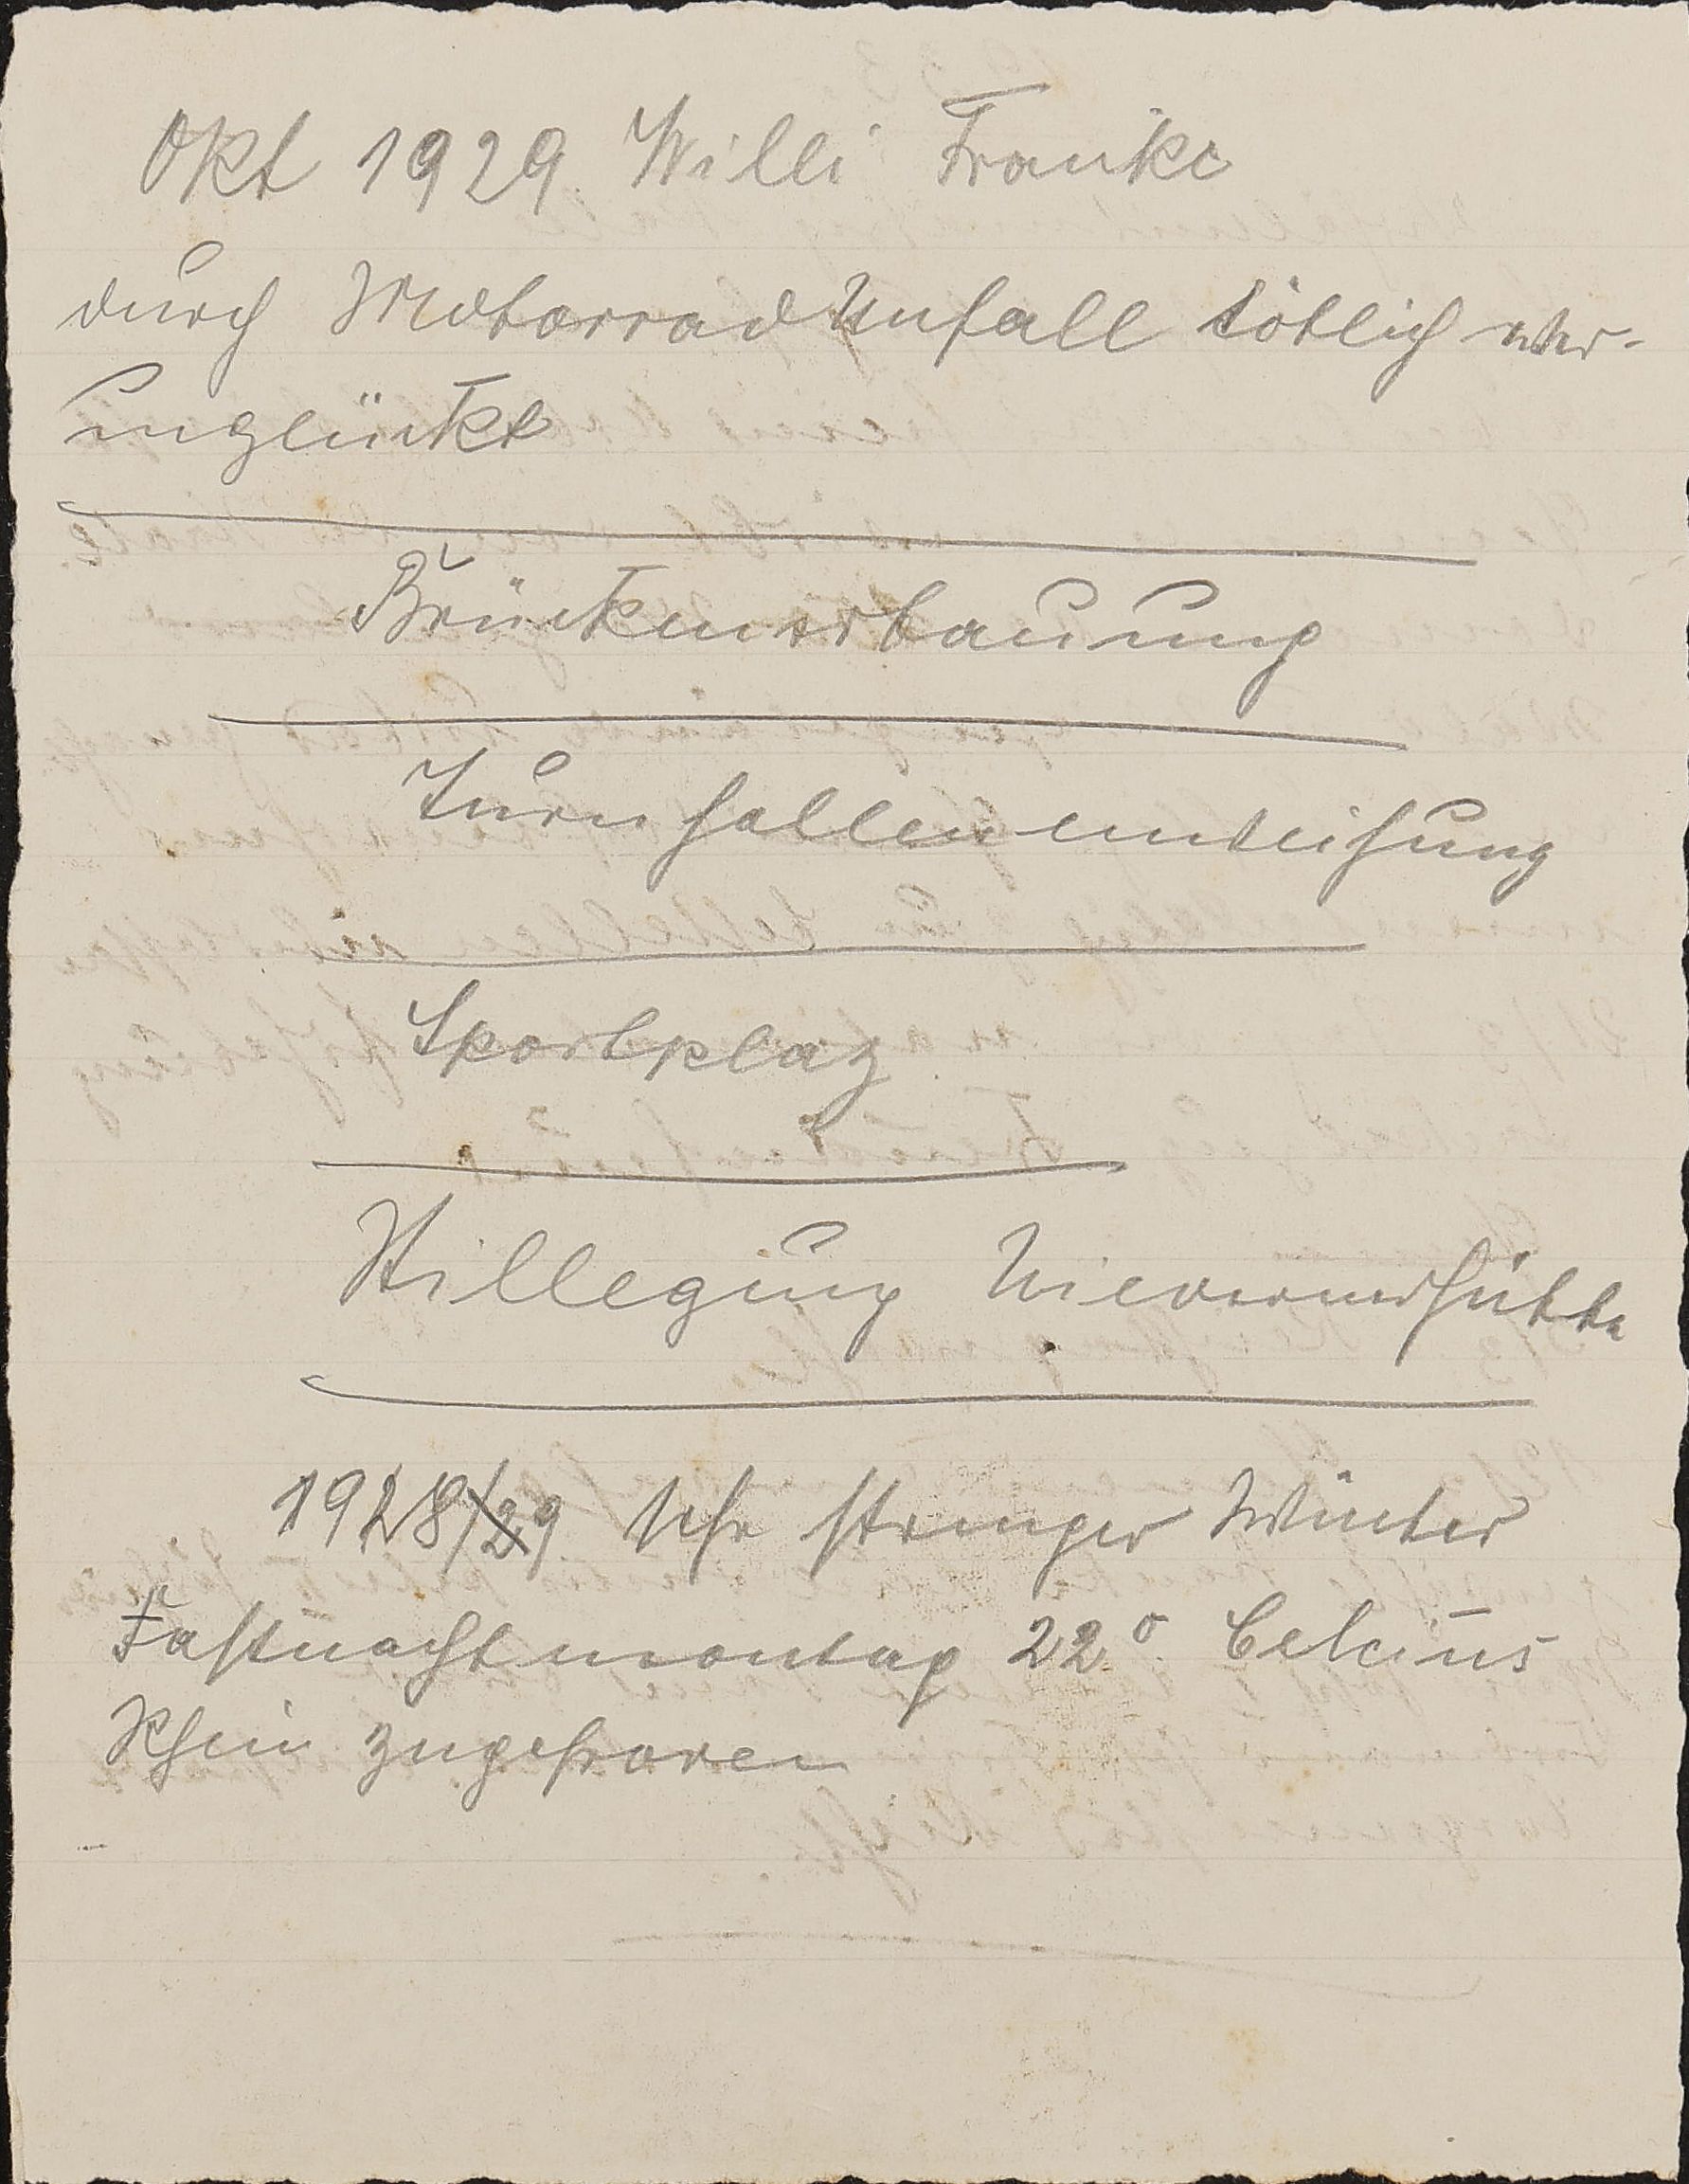 Okt 1929 Willi Franke
durch Motorrad Unfall tötlich ver-
unglückt
Brückenerbauung
Turnhalleneinweihung
Sportplaz
Stillegung Nieverner Hütte
1928/29 Sehr strenger Winter
Fastnachtmontag 22° Celcius
Rhein zugefroren